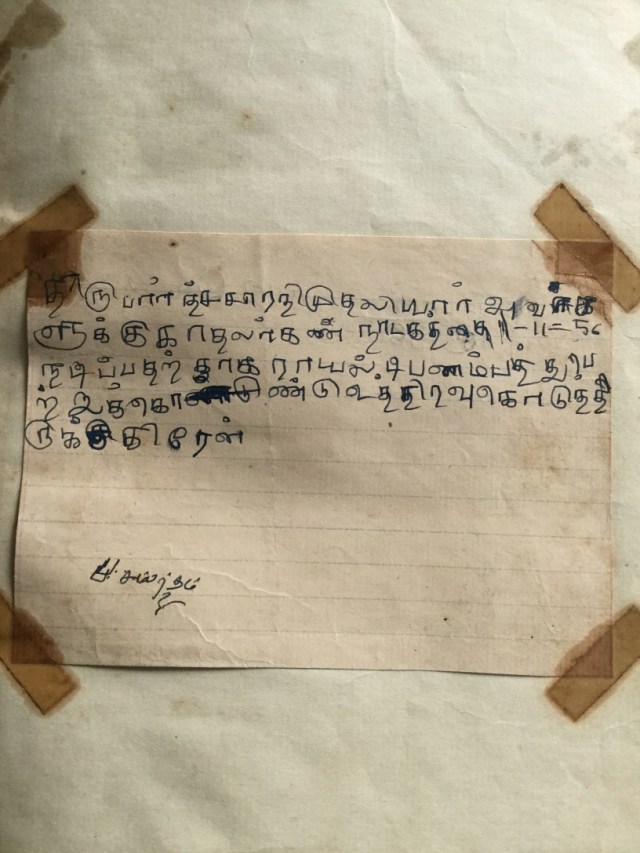 திரு பார்ர்த்சாரதிமுதலியார் அவர்க
ளுக்கு காதலர்கண் நாடகத்தை 1-11-56
நடிப்பதற் காக ராயல்டி பணம்பத் துபெ
ற் றுக்கொண்டு உத்திரவுகொடுத்தி
ருக்கிறேன்